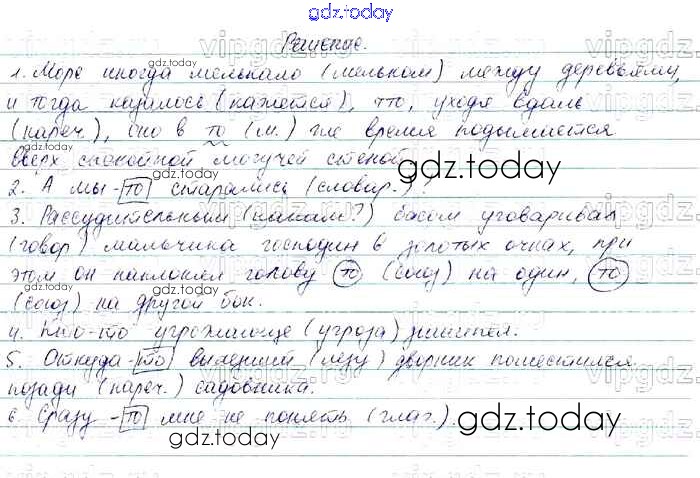 gdz.today
Решение.
1. Море иногда мелькало (мельком) между деревьями,
и тогда казалось (кажется), что, уходя вдаль
(нареч.), оно в то (м.) же время подымается
вверх спокойной могучей стеной.
2. А мы-то старались (словар.)!
3. Рассудительным (каким?) басом уговаривал
(говор) мальчика господин в золотых очках, при
этом он наклонял голову то (союз) на один, то
(союз) на другой бок.
4. Кто-то угрожающе (угроза) зашипел.
5. Откуда-то вылезший (лезу) дворник поместился
позади (нареч.) садовника.
6. Сразу-то мне не понять (глаг.).
gdz.today
gdz.today
gdz.today
gdz.today
gdz.today
gdz.today
gdz.today
gdz.today
vipgdz.ru